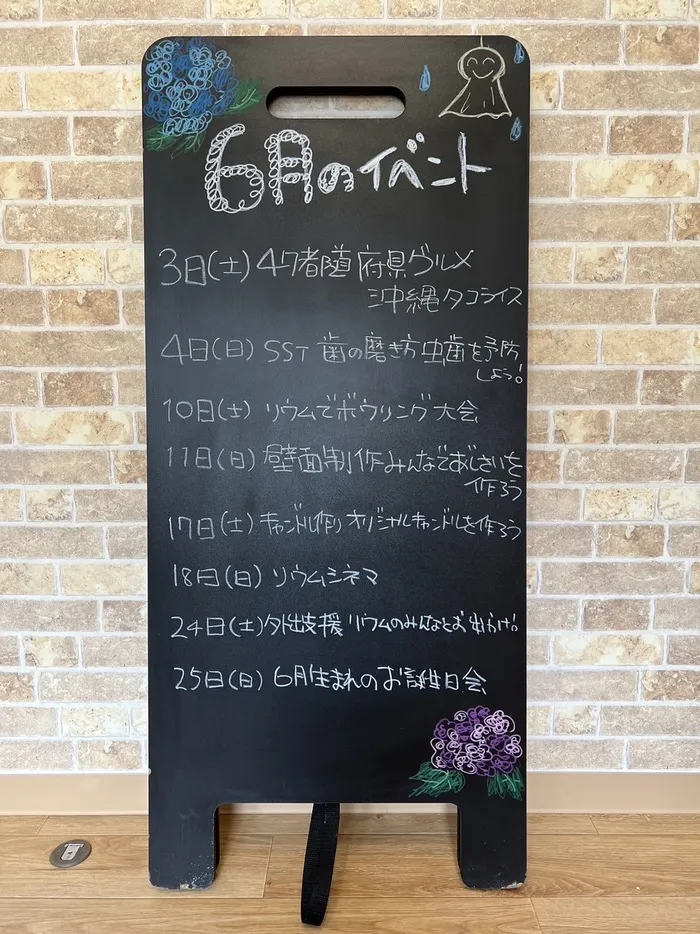 6月のイベント
3日(土) 47都道府県グルメ
沖縄タコライス
4日(日) SST 歯の磨き方 虫歯を予防
しよう!
10日(土) リウムでボウリング大会
11日(日) 壁面制作みんなであじさいを
作ろう
17日(土) キャンドル作り オリジナルキャンドルを作ろう
18日(日) リウムシネマ
24日(土) 外出支援 リウムのみんなとお出かけ。
25日(日) 6月生まれのお誕生日会